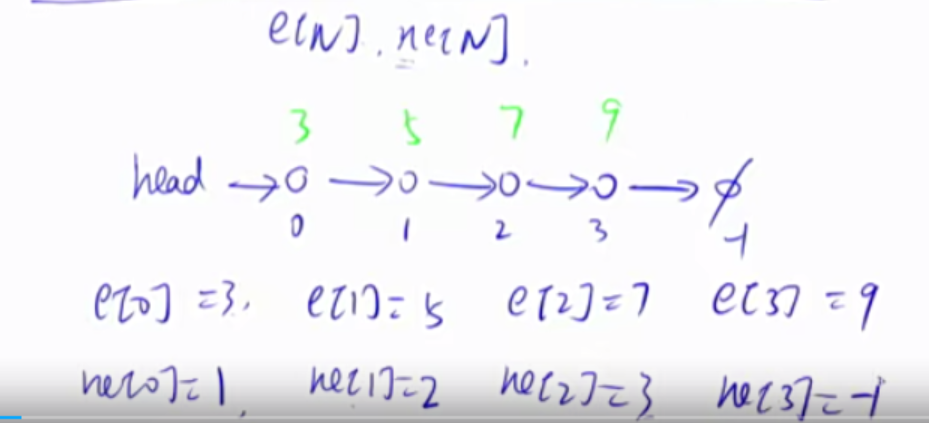 e[N], ne[N].
3 5 7 9
head → O → O → O → O → ϕ
0 1 2 3 -1
e[0]=3, e[1]=5 e[2]=7 e[3]=9
ne[0]=1, ne[1]=2 ne[2]=3 ne[3]=-1